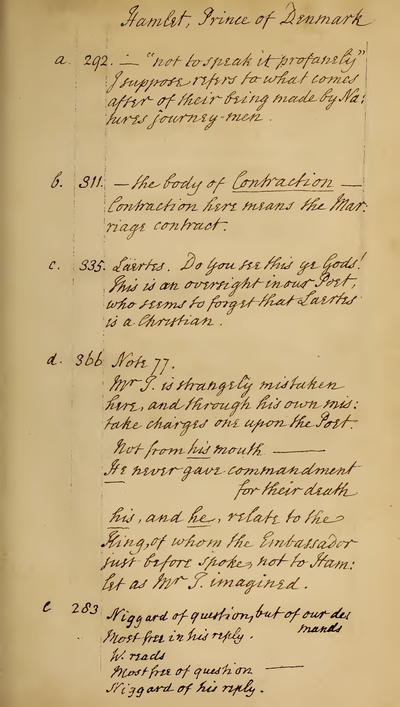 Hamlet, Prince of Denmark
a. 292. — "not to speak it profanely"
I suppose refers to what comes
after of their being made by Na:
tures journey-men.
b. 311. — the body of Contraction —
Contraction here means the Mar:
riage contract.
c. 335. Laertes. Do you see this ye Gods!
This is an oversight in our Poet,
who seems to forget that Laertes
is a Christian.
d. 366 Note 77.
Mr T. is strangely mistaken
here, and through his own mis:
take charges one upon the Poet.
Not from his mouth —
He never gave commandment
for their death
his, and he, relate to the
King, of whom the Embassador
just before spoke, not to Ham:
let as Mr T. imagined.
e 283 Niggard of question, but of our de
mands
Most free in his reply.
W. reads
Most free of question —
Niggard of his reply.